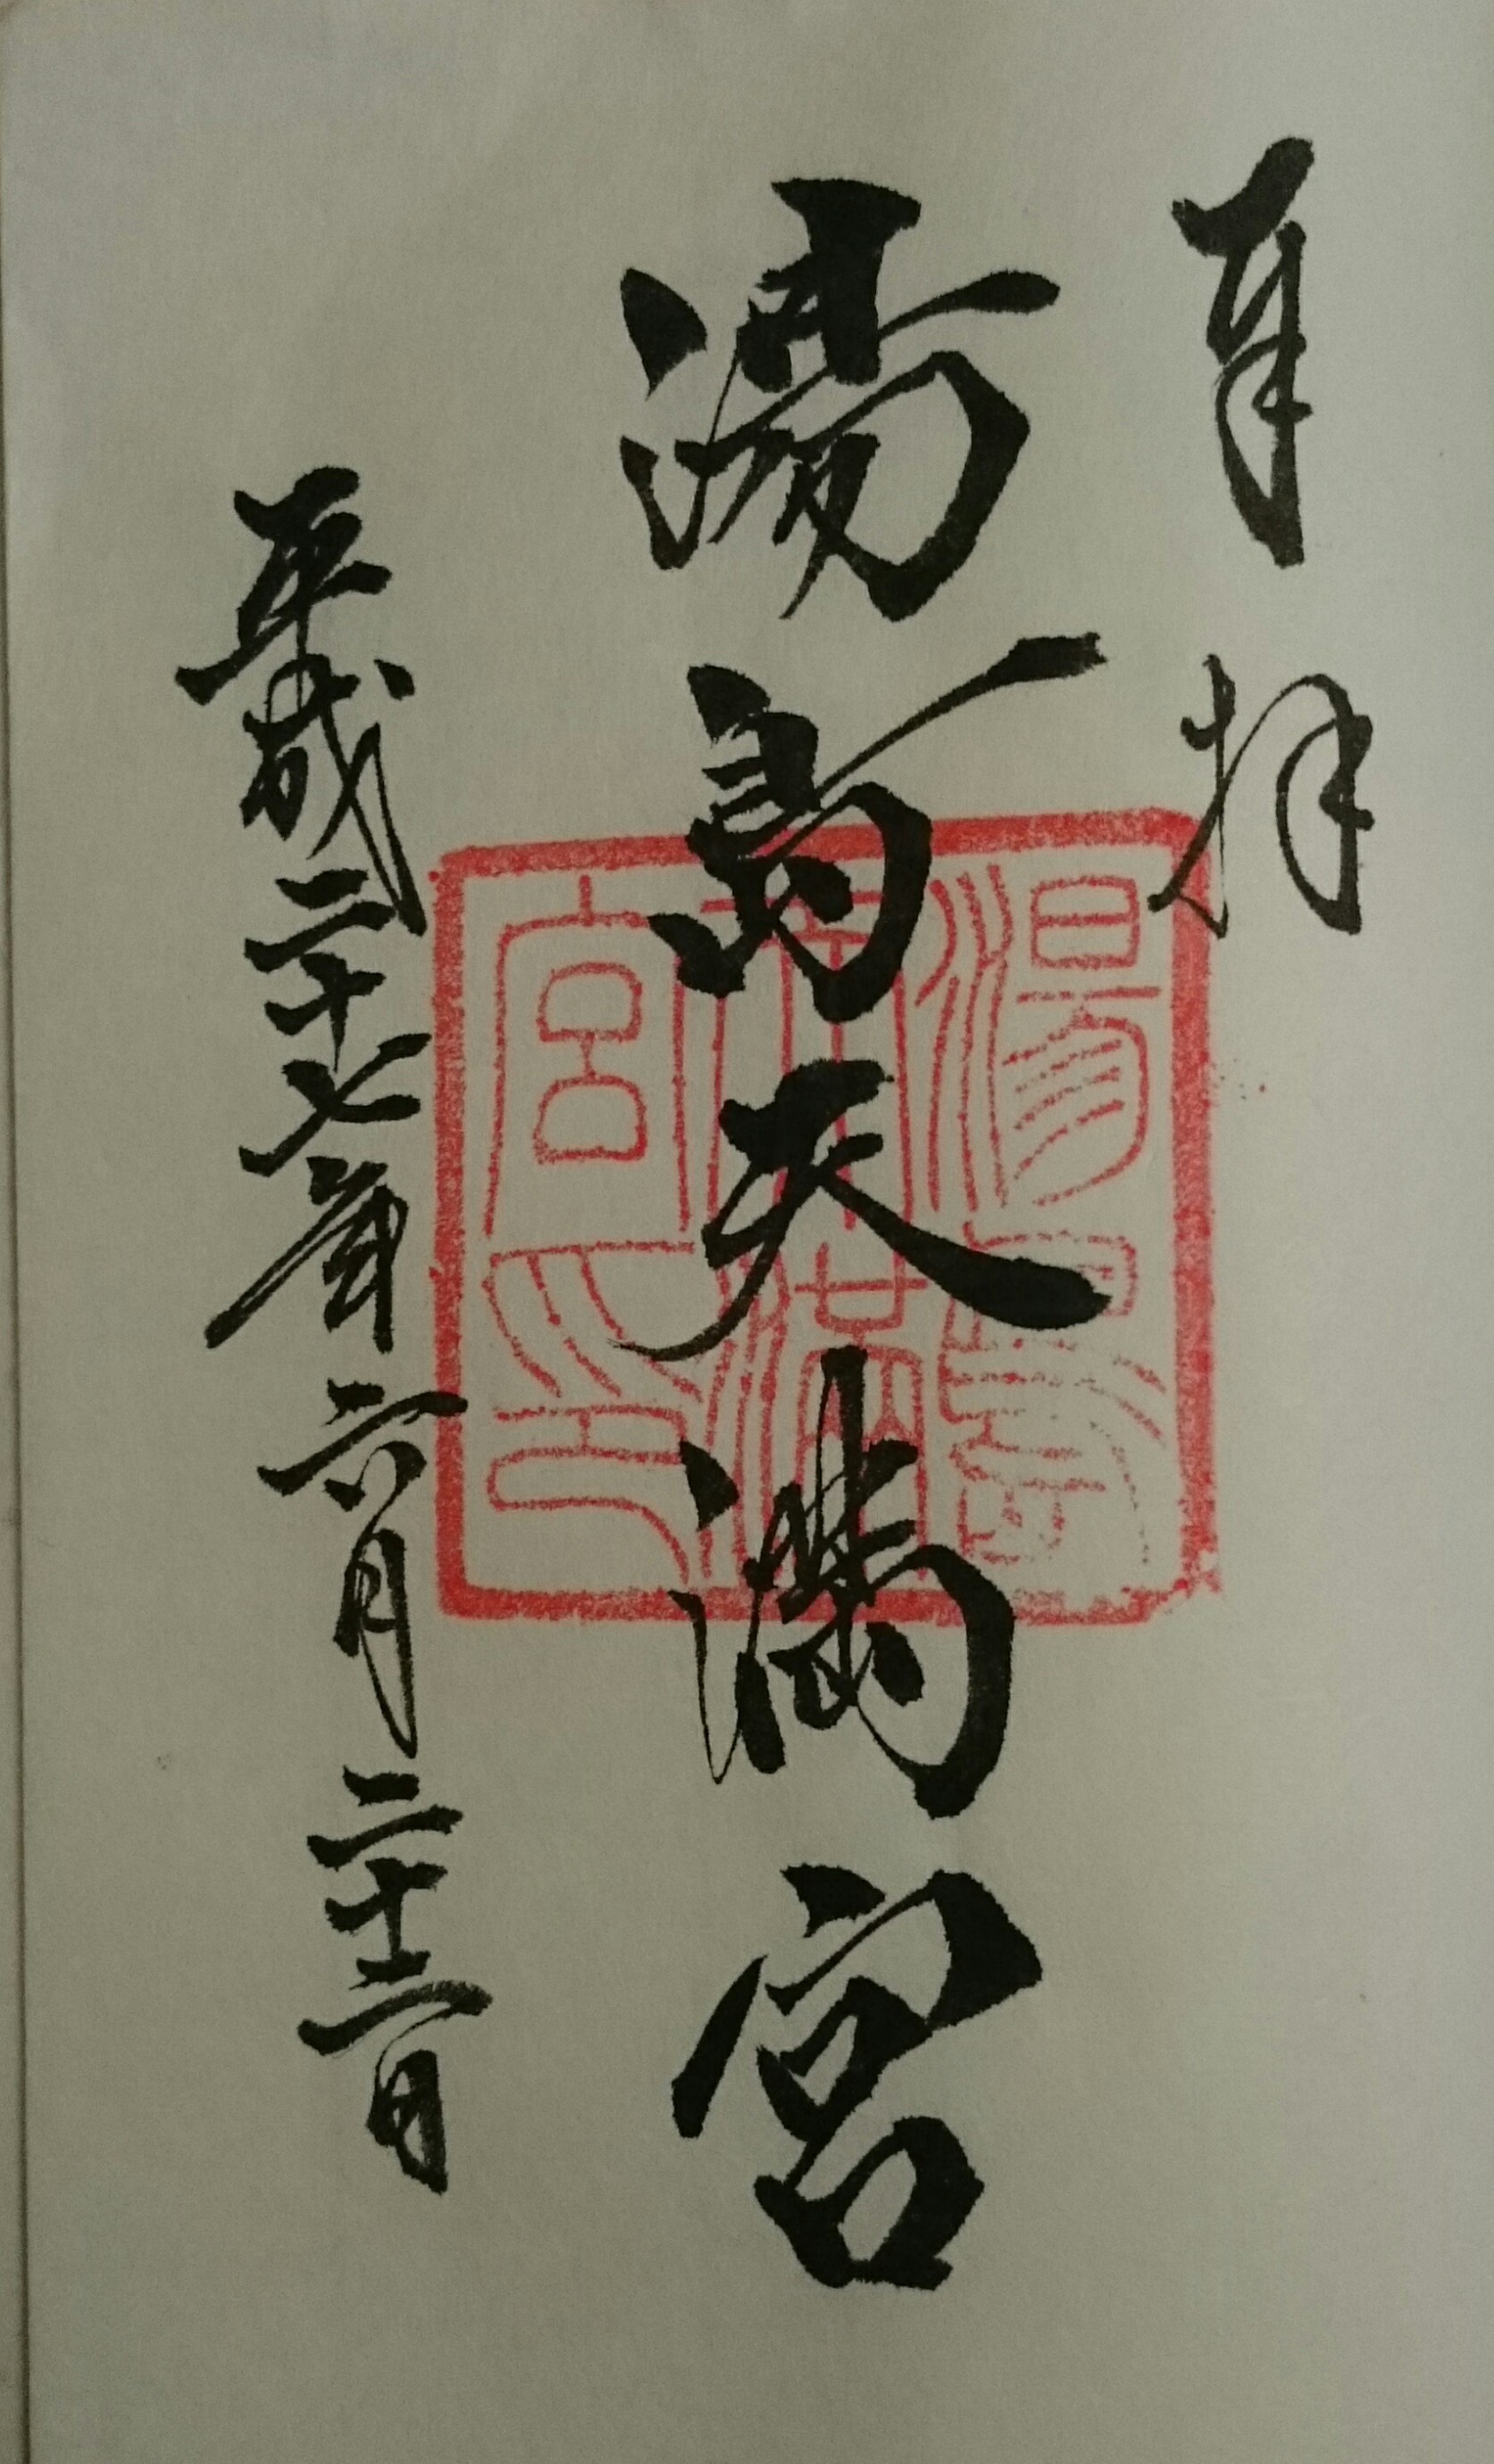 奉拝
湯島天満宮
平成二十七年六月二十二日
湯島
天満
宮印